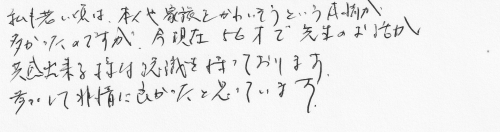 私も若い頃は、本人や家族をかわいそうという事例が
多かったのですが、今現在56才で先生のお話が
共感出来る様な認識を持っております。
参加して非常に良かったと思っています。